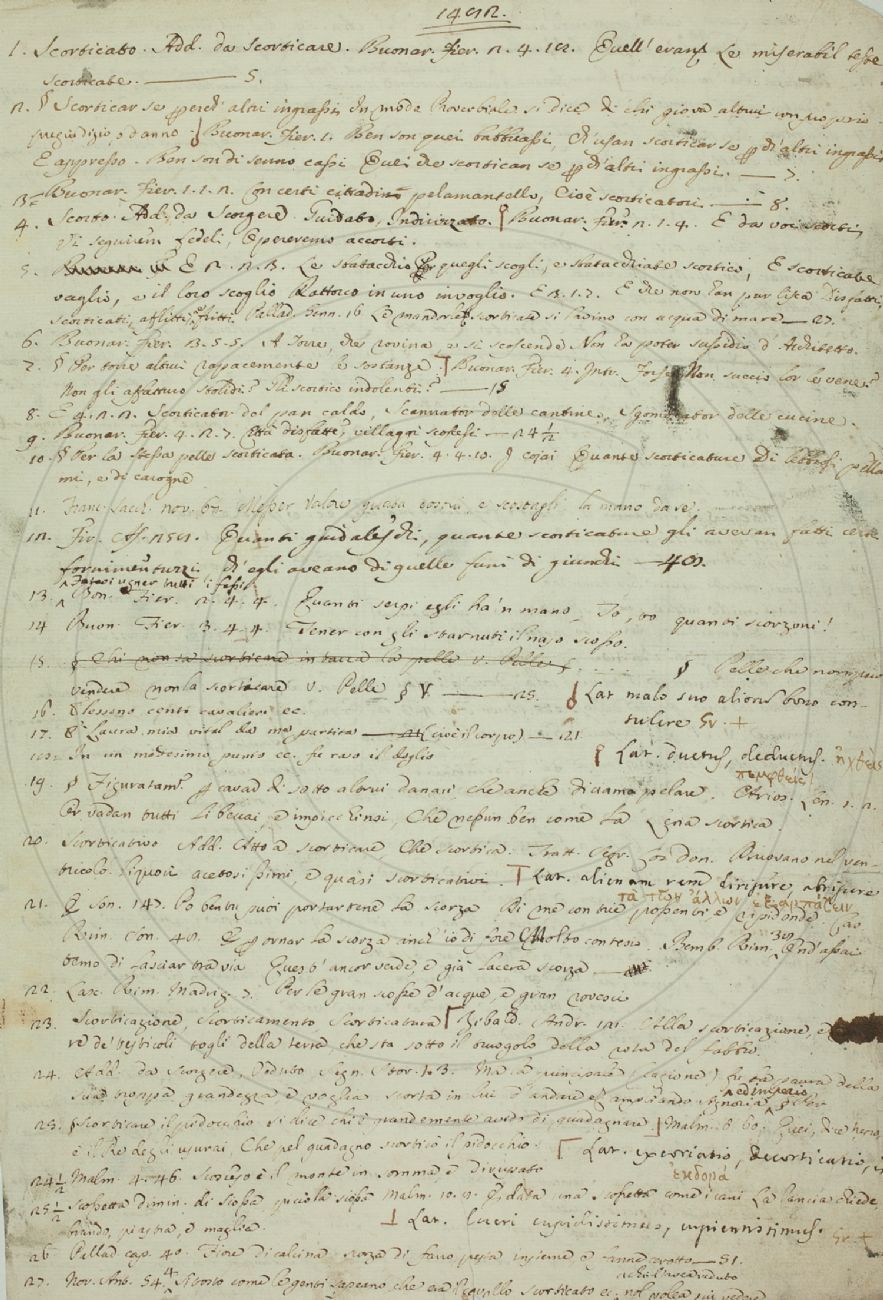 1492.
1. Scorticato. Add. da Scorticare. Buonar. Fier. 2. 4. 12. Quell' eran le miserabil teste
scorticate. ——— 5.
2. § Scorticar se perch' altri ingrassi, In modo Proverbiale si dice di chi giova altrui con suo pre-
giudizio, o danno. Buonar. Fier. 1. Ben son quei babbuassi, Ch' usan scorticar se perch' altri ingrassi
E appresso. Ben son di senno cassi Quei che scortican se perch' altri ingrassi. — 7.
3. Buonar. Fier. 1. 1. 2. Con certi cittadin pelamantello, Cioè scorticatori. — 8.
4. Scorto. Add. da Scorgere. Guidato, Indirizzato. Buonar. Fier. 2. 1. 4. E da voi scorti,
Vi seguirem fedeli, opereremo accorti.
5. E 2. 2. 3. Le sbatacchio per quegli scogli, e sbatacchiate scortico, E scorticate
veglio, e il loro scoglio Rattorco in uno invoglio. E 3. 1. 7. E che non han pur lisca Disfatti,
scorticati, afflitti, fritti. Pallad. Genn. 16 Le scorticate si lavino con acqua di mare — 27.
6. Buonar. Fier. 3. 5. 5. A torre, che rovina e si scoscende Non ha poter sussidio d' Architetto.
7. § Per torre altrui rapacemente le sostanze Buonar. Fier. 4. Intr. Forse Non succio lor le vene?
Non gli affatturo stolidi? Non scortico indolenti? — 15
8. E 4. 2. 2. Scorticator del pan caldo, Scannator delle cantine, Sgominator delle cucine.
9. Buonar. Fier. 4. 2. 7. Città disfatte, villaggi scoscesi — 24 1/2
10. § Per la stessa pelle scorticata. Buonar. Fier. 4. 4. 10. Quante scorticature Di
e di carogne
11. Franc. Sacch. nov. la mano da se.
12. Fir. As. Quanti guidaleschi, quante scorticature gli avevan fatti certi
fornimentuzzi ch' egli aveano di quelle funi di giunchi — 40.
tutti i fessi.
13. Bon. Fier. 2. 4. 4. Quanti serpi egli ha 'n mano, To, to quanti scorzoni!
14 Buon. Fier. 3. 4. 4. Tener con gli starnuti il naso scosso.
15. § Chi non sa scorticare intacca la pelle v. Pelle § Pelle che non puoi
vendere non la scorticare v. Pelle § V. — 25. Lat. malo suo alienis bono con-
sulere Gr. +
16. cento cavalieri ec.
17. Laura mia vital da me partita — (cioè il corpo) — 21
18. In un medesimo punto ec. fu raso il foglio Lat. ductus, deductus. ἠχθείς
πεμφθείς
19. § Figuratam. per cavar di sotto altrui danari, che anche diciamo pelare. 1. 2.
Per vadan tutti i beccai, e impicchinsi, Che nessun ben come la scortica.
20. Scorticativo Add. Atto a scorticare Che scortica. Tratt. Segr. cos. don. Pruovano nel ven-
tricolo liquori acetosissimi, e quasi scorticativi. Lat. alienam rem diripere, abripere
τὰ τῶν ἄλλων ἐξαρπάζειν
21. son. 147. Po ben tu puoi portartene la scorza Di me con tue possenti e rapide onde.
Rim. son. 40. per ornar la scorza anch' io di fore Molto contesi. Bemb. Rim. 30 Ond' assai
temo di lasciar tra via Quest' ancor verde, e già lacera scorza
22. Lasc. Rim. Madrig. 7. Per le gran scosse d' acque, e gran rovesci
23. Scorticazione, Scorticamento Scorticatura Zibald. Andr. 121. Alla scorticazione, e
re de' testicoli togli della terra che sta sotto il truogolo della rota del fabbro.
24. Add. da Scorgere, Veduto Segn. Stor. 1. 3. Ma la principale cagione fu la paura della
sua troppa grandezza e voglia scorta in lui d' andare ampliando
ed imperio
25. § Scorticare il pidocchio si dice chi è grandemente avido di guadagnare Malm. 6. 60. Quei, che
è il Re degli usurai, Che pel guadagno scorticò il pidocchio. Lat. decorticatio,
ἐκδορά
24 1/2 Malm. 4. 46. Scosceso è il monte in somma e dirupato
25 1/2 Scossetta dimin. di Scossa piccola scossa Malm. 10. 2. E data una scossetta come i cani La lancia chiede,
brando, piastra, e maglia. Lat. lucri cupidissimus, Gr. +
26 Pallad. cap. 40. Fiore di calcina scorza di pesta insieme e fanne — 31.
27. Nov. Ant. 54. 4 Sì tosto come le genti sapeano, che era quello scorticato ec. nol volea più vedere